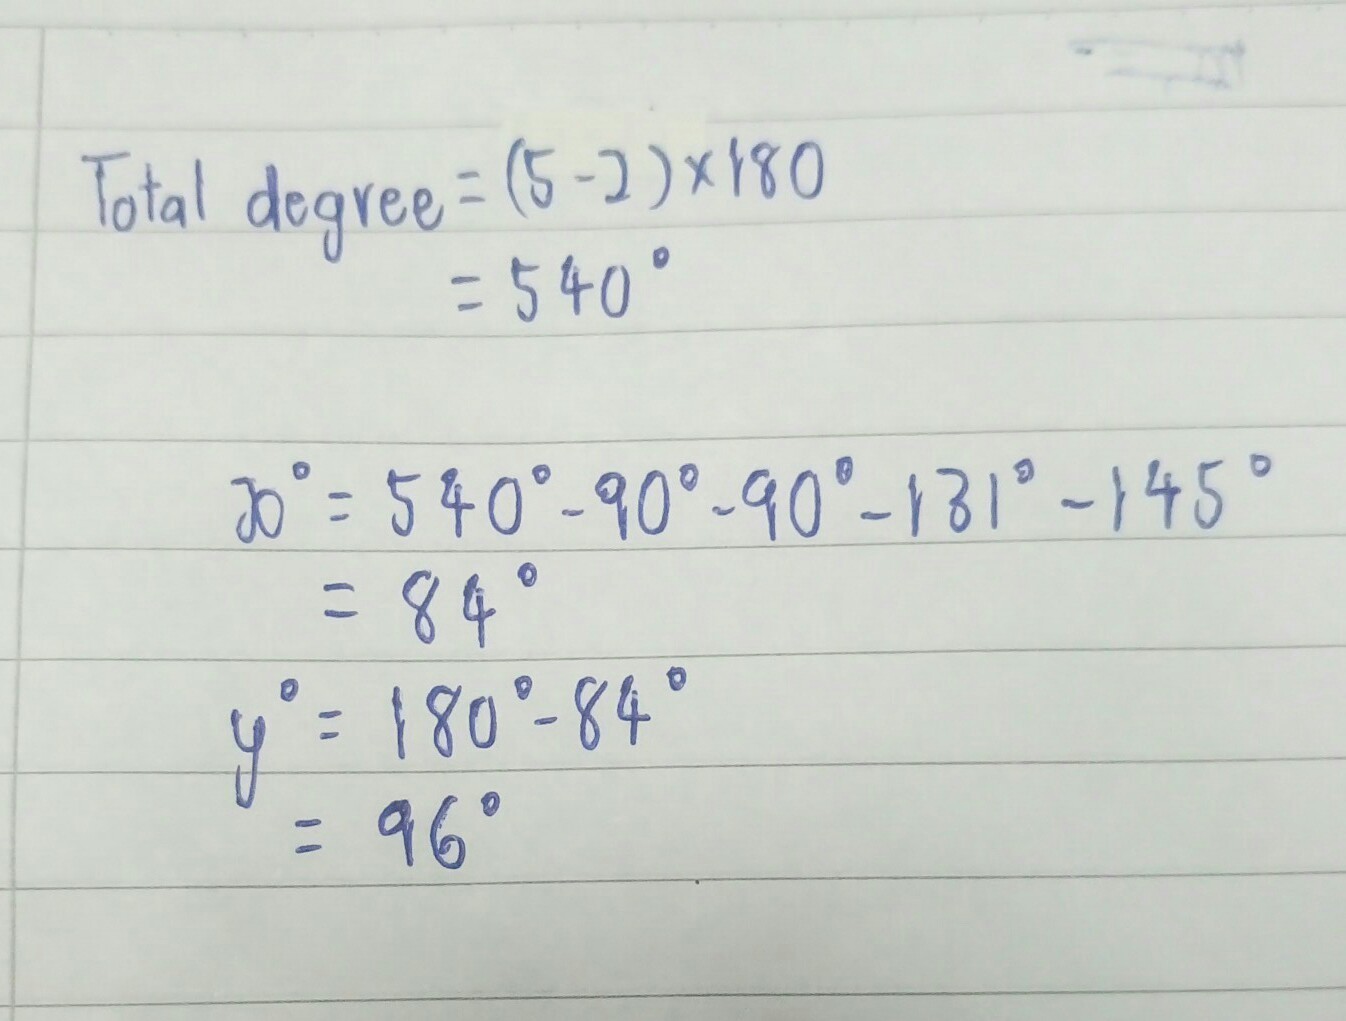 Total degree = (5-2)×180
= 540°
x° = 540° - 90° - 90° - 131° - 145°
= 84°
y° = 180° - 84°
= 96°